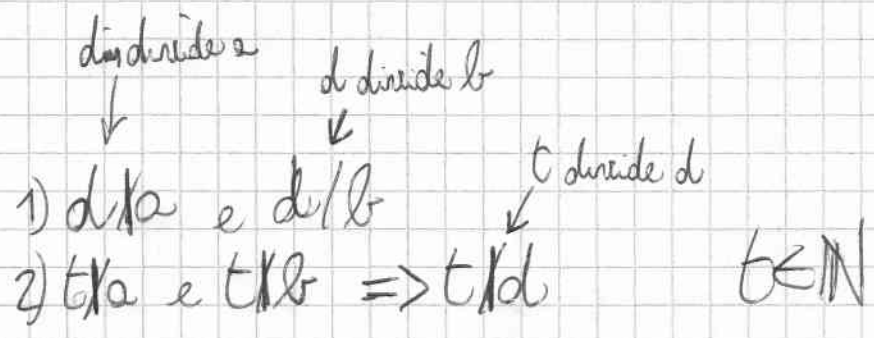 d divide a
d divide b
t divide d
1) d/a e d/b
2) t/a e t/b => t/d t∈ℕ